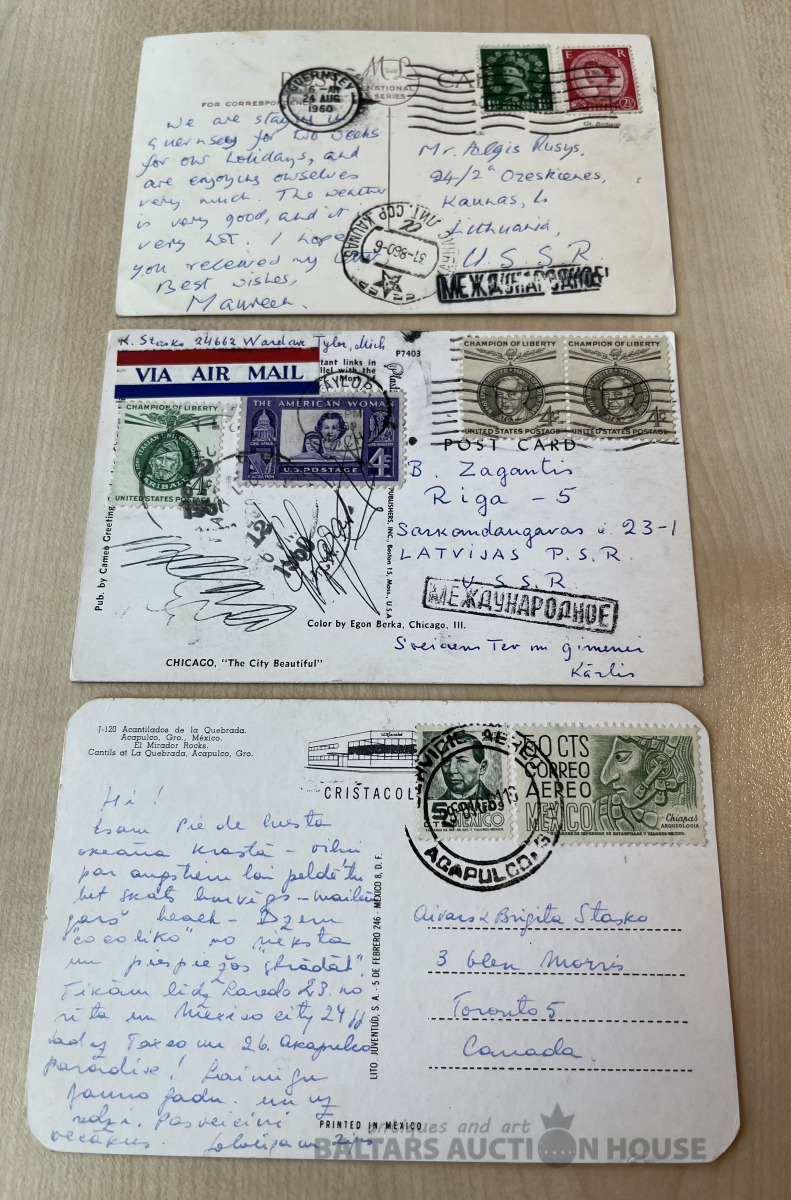 POST CARD
NATIONAL
SERIES
FOR CORRESPONDENCE
GUERNSEY
6 - AM
24 AUG
1960
E R
Gt. Britain
We are staying in
Guernsey for two weeks
for our holidays, and
are enjoying ourselves
very much. The weather
is very good, and it
very hot. I hope
you received my
Best wishes,
Maureen.
Mr. Algis Rusys,
24/2a Ozeskienes,
Kaunas,
Lithuania,
U.S.S.R.
ЛИТ. ССР KAUNAS
31-860-6
МЕЖДУНАРОДНОЕ
K. Stasko 24662 Wardow Tylor, Mich
tant links in
llel with the
P7403
VIA AIR MAIL
CHAMPION OF LIBERTY
GARIBALDI
4¢
UNITED STATES POSTAGE
TAYLOR
THE AMERICAN WOMAN
U.S. POSTAGE 4¢
CHAMPION OF LIBERTY CHAMPION OF LIBERTY
4¢ 4¢
UNITED STATES POSTAGE UNITED STATES POSTAGE
12
1960
POST CARD
B. Zagantis
Riga - 5
Sarkandaugavas i 23-1
LATVIJAS P.S.R.
U.S.S.R
МЕЖДУНАРОДНОЕ
Pub. by Cameo Greeting
PUBLISHERS, INC., Boston 15, Mass., U.S.A.
Color by Egon Berka, Chicago, Ill.
CHICAGO, "The City Beautiful"
Sveiciens Tev un gimenei
Kārlis
J-120 Acantilados de la Quebrada.
Acapulco, Gro., México.
El Mirador Rocks.
Cantils at La Quebrada, Acapulco, Gro.
CRISTACOL
SERVICIO AEREO
ACAPULCO, G
5 CORREOS
CTS MEXICO
50 CTS
CORREO
AEREO
MEXICO
Chiapas
ARQUEOLOGIA
Hi!
Esam pie de
okeāna krastā vilni
par augstiem lai peldētu
bet skats
garš beach - Dzēm
"coco liko" no rieksta
un piespiežos "strādāt".
Tikām līdz Laredo 23. no
rīta un Mexico city 24
tad uz Taxco un 26. Akapulko
Paradise!
Jauno gadu. un uz
redzi. Pasveicini
vecākus.
LITO. JUVENTUD, S. A. - 5 DE FEBRERO 246 - MEXICO 8, D. F.
Aivars & Brigita Stasko
3 Glen Morris
Toronto 5
Canada
PRINTED IN MEXICO
antiques and art
BALTARS AUCTION HOUSE